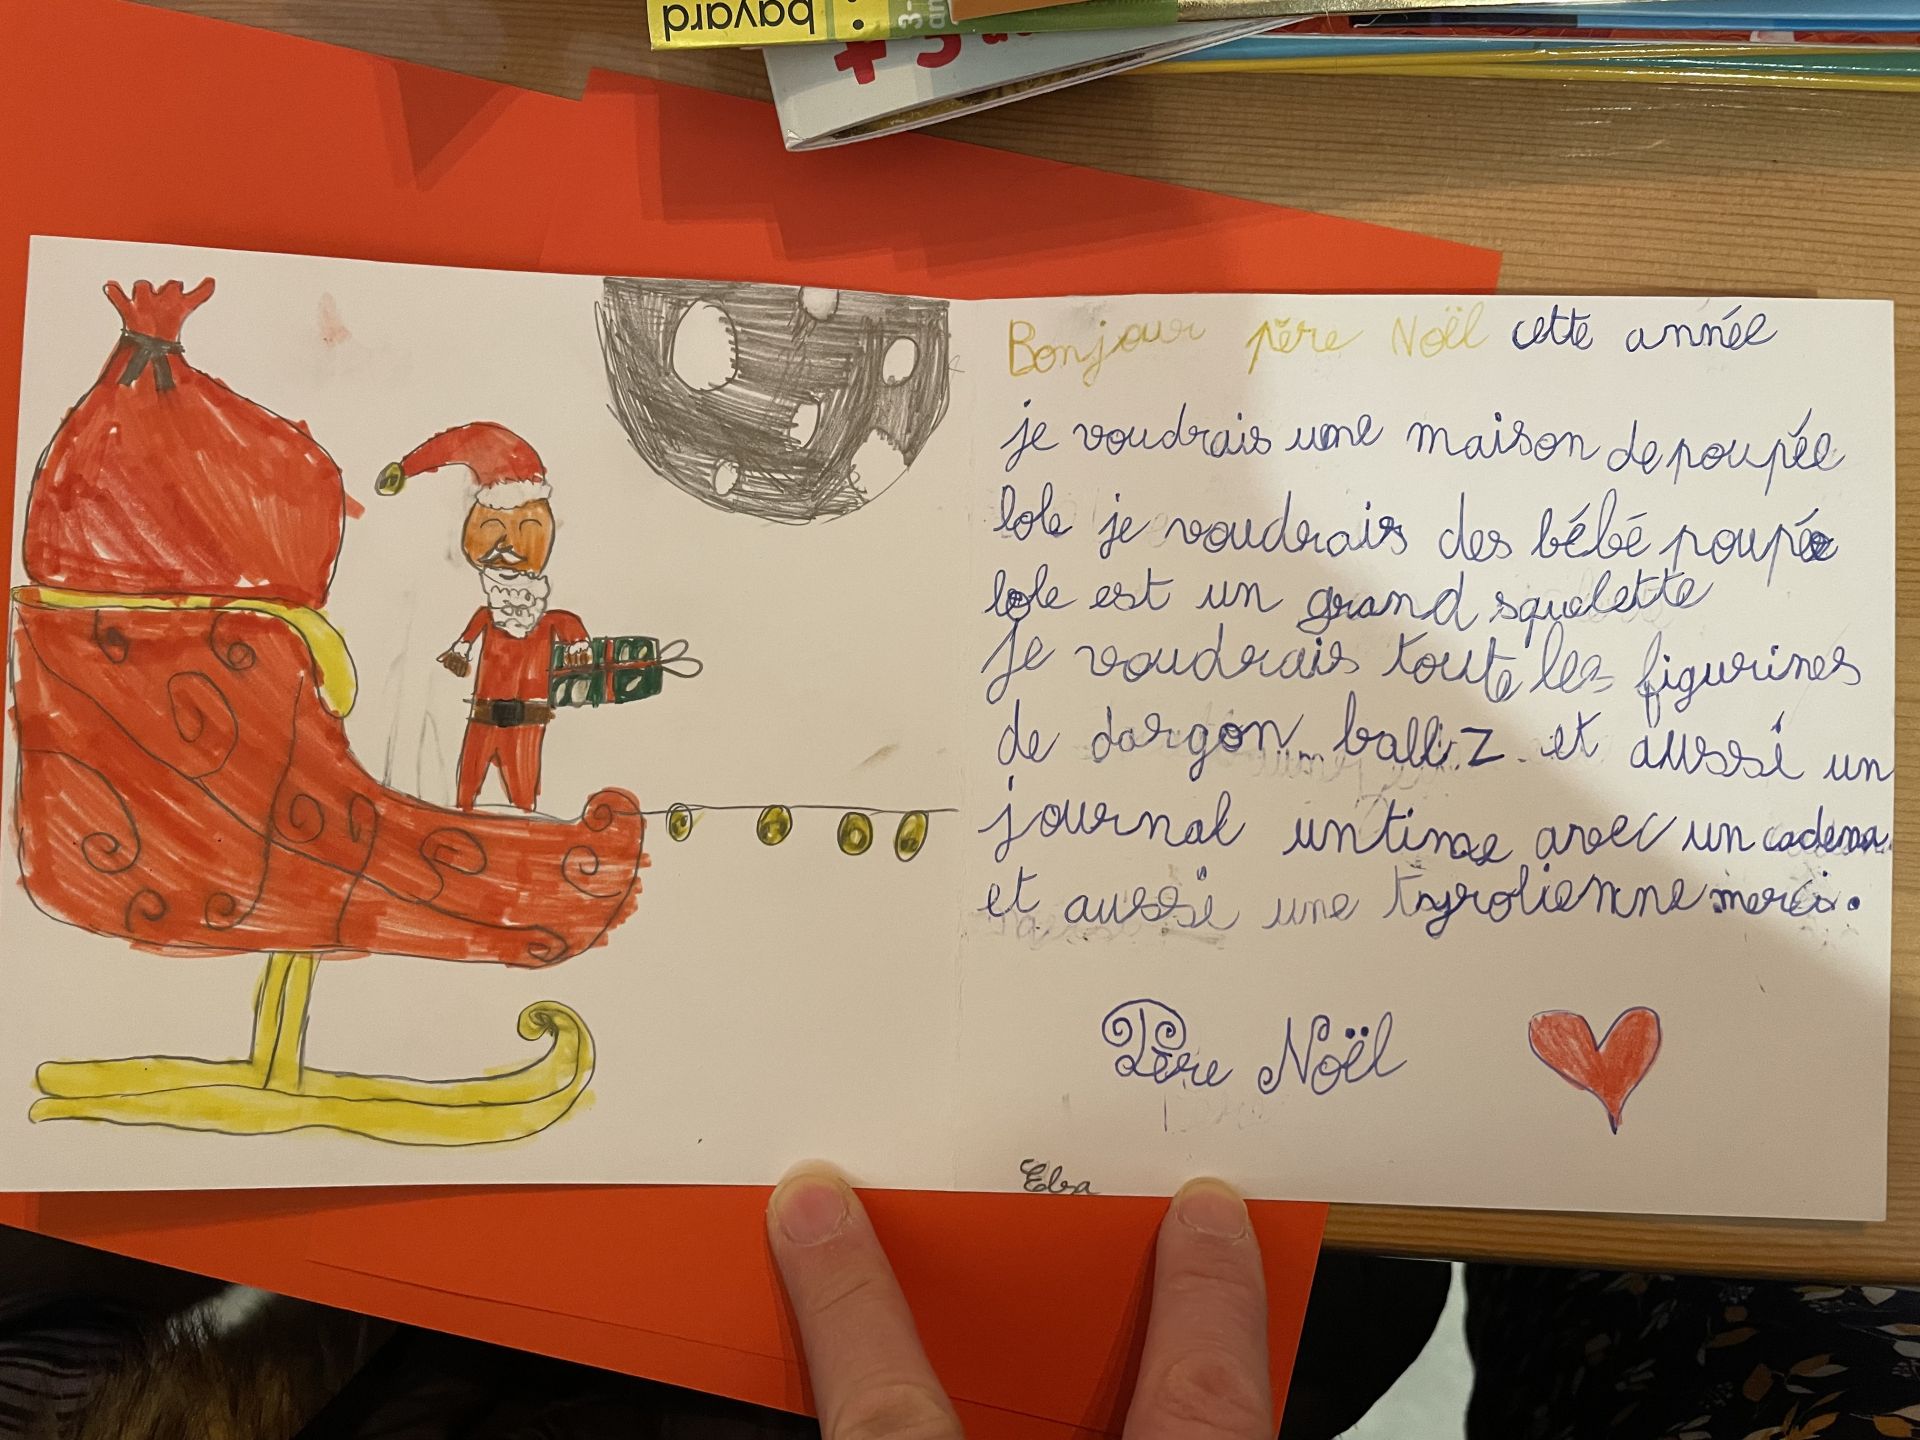 bayard
3-
an
Bonjour père Noël cette année
je voudrais une maison de poupée
lole je voudrais des bébé poupée
lole est un grand squelette
je voudrais toute les figurines
de dargon ball Z. et aussi un
journal untime avec un cadena
et aussi une tyrolienne merci.
Père Noël
Elsa